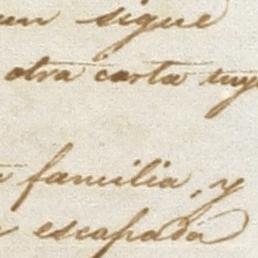 un sigue
otra carta suy
familia, y
escapada